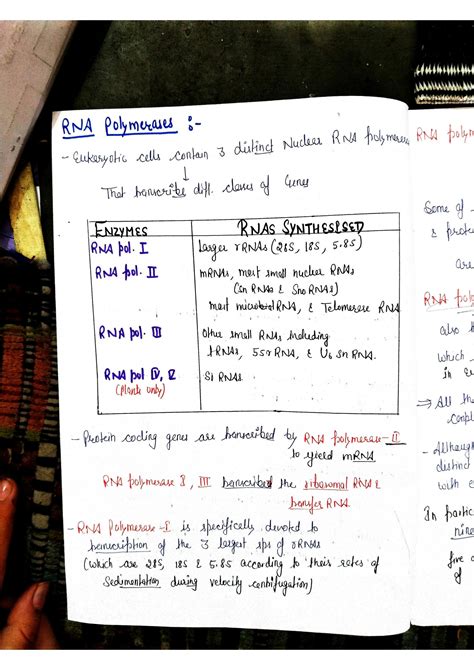 RNA Polymerases :-
- Eukaryotic cells contain 3 distinct Nuclear RNA polymerases
↓
That transcribes diff. classes of Genes
ENZYMES RNAS SYNTHESISED
RNA pol. I Larger rRNAs (28S, 18S, 5.8S)
RNA pol. II mRNAs, most small nuclear RNAs
(Sn RNAs & Sno RNAs)
most microbial RNA, & Telomerase RNA
RNA pol. III Other small RNAs including
tRNAs, 5SrRNA, & U6 SnRNA.
RNA pol IV, V Si RNAs
(Plants only)
- Protein coding genes are transcribed by RNA polymerase-II
to yield mRNA
RNA polymerase I, III transcribed the ribosomal RNA &
transfer RNA.
- RNA Polymerase -I is specifically devoted to
transcription of the 3 largest sps of rRNAs
(which are 28S, 18S & 5.8S according to their rates of
Sedimentation during velocity centrifugation)
RNA polym
Some of
& prote
are
RNA poly
also
which
in Eu
⇒ All the
compl
- Although
distinct
with
In partic
nine
five
of